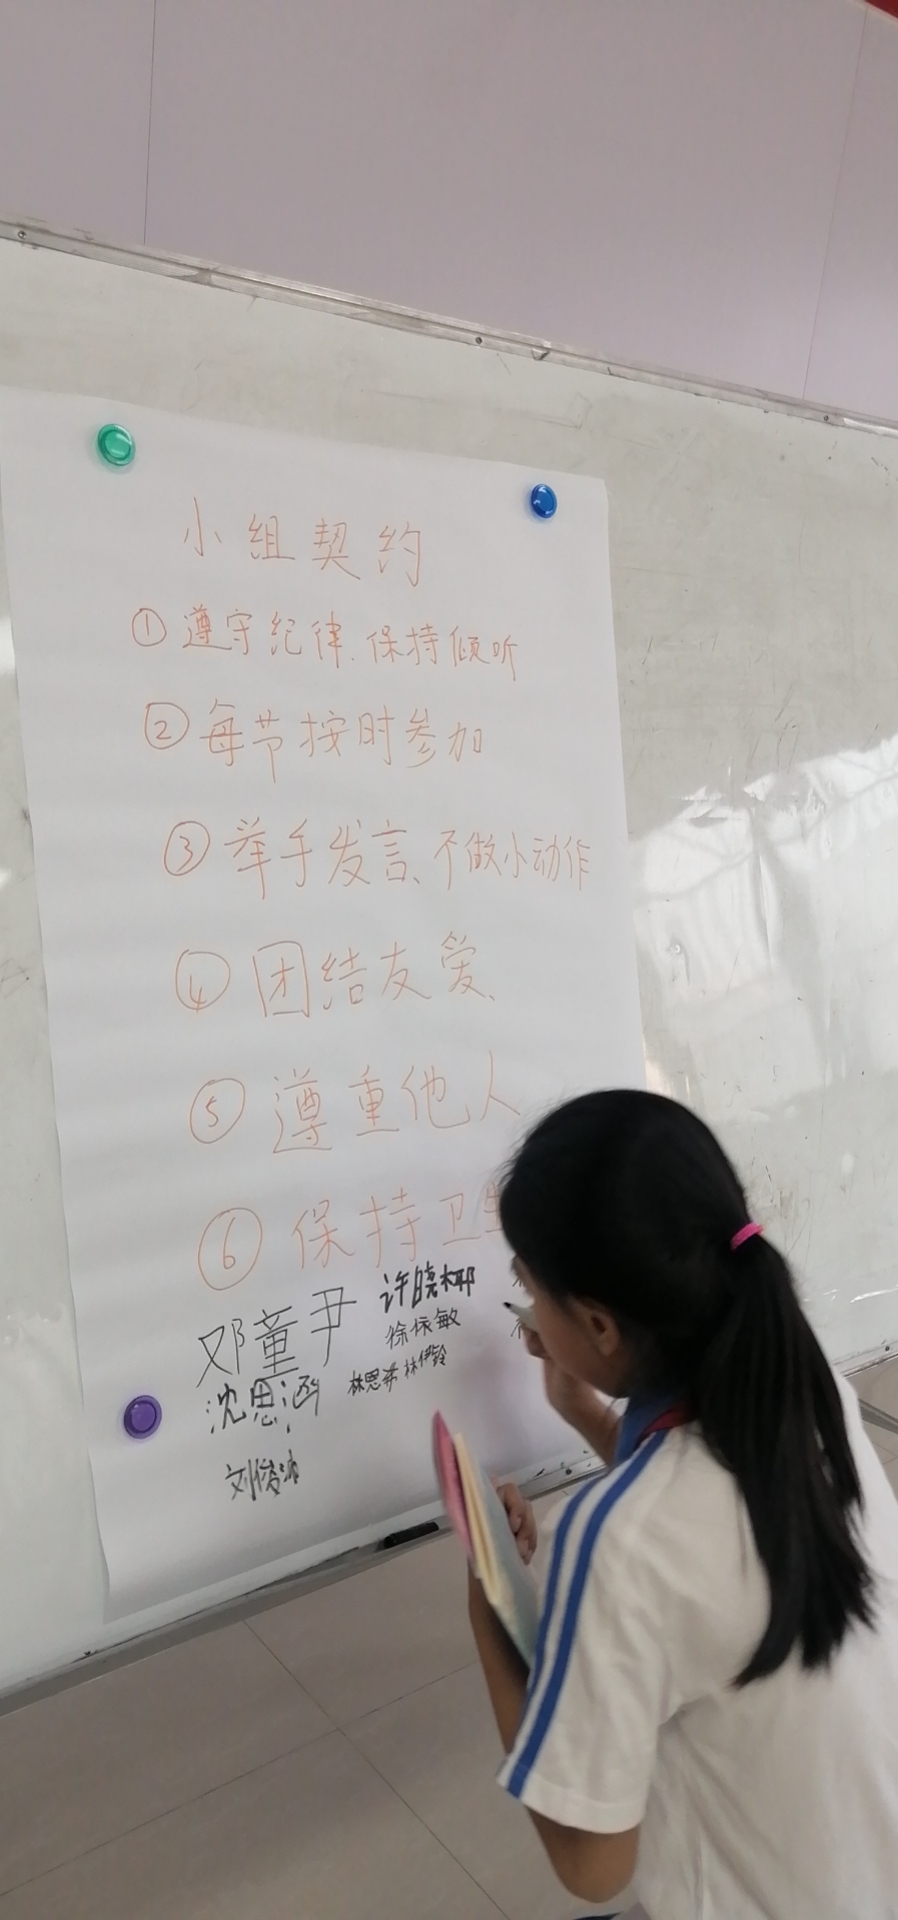 小组契约
①遵守纪律、保持倾听
②每节按时参加
③举手发言、不做小动作
④团结友爱、
⑤遵重他人
⑥保持卫生
邓童尹 许晓椰
徐依敏
沈思涵 林思希 林伊铃
刘俊